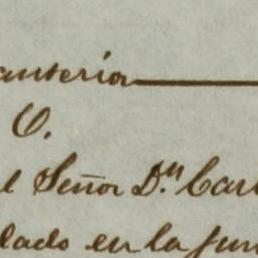 anteria
O.
l Señor D.n Carl
lado en la fun